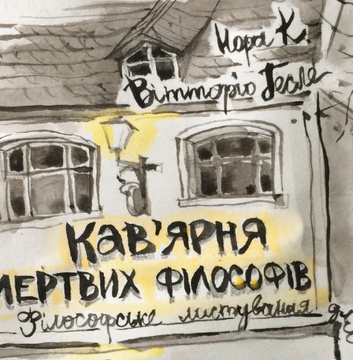 Нора К.
Вітторіо Гесле
Кав'ярня
мертвих філософів
Філософське листування